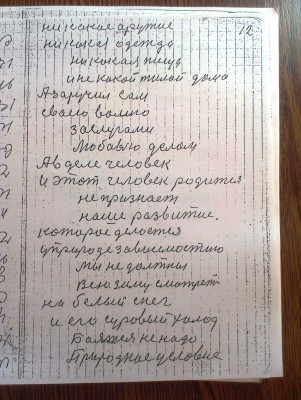 12
никакое аружие
никакая одежда
никакая пищь
и не какой жилой дома
А заручил сам
своею волию
заслугами
Любовью делом
А в деле человек
и этот человек родится
не признает
наше развитие.
которое делается
у природе зависимостию
мы не должны
Всю зиму смотреть
на белый снег
и его суровый холод
Баяжся не надо
Природное условие